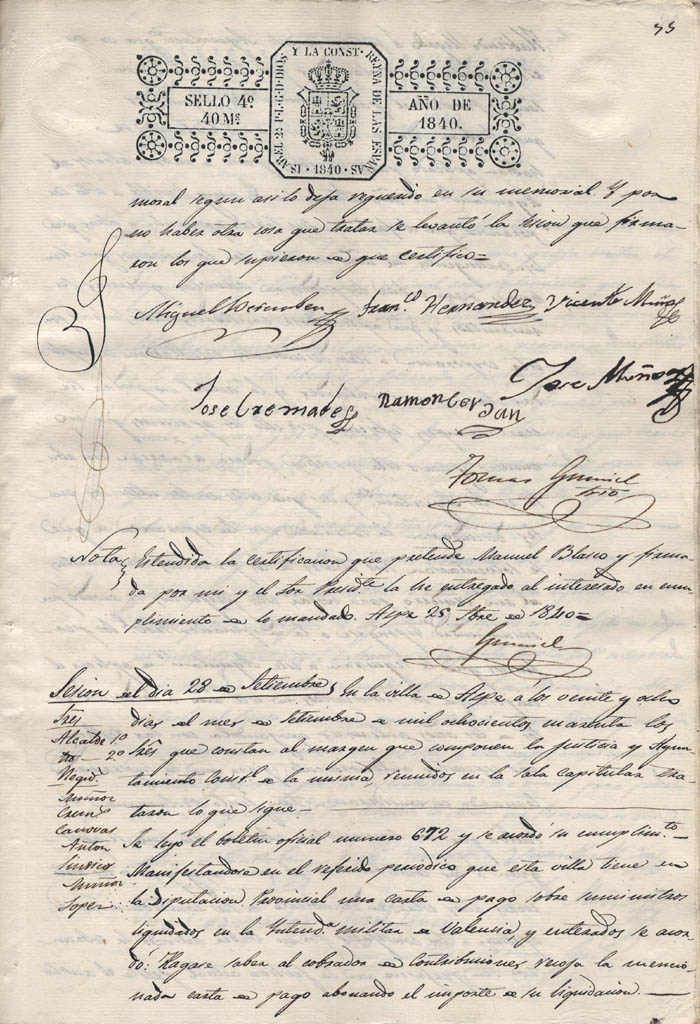 55
Y LA CONST. REYNA DE LAS ESPAÑAS
ISABEL 2ª P. L. G. D. DIOS
1840
SELLO 4º
40 Ms
AÑO DE
1840.
moral segun asi lo deja requerido en su memorial. Y por
no haber otra cosa que tratar se levantó la sesion que firma-
ron los que supieron de que certifico=
Miguel Franco Hernandez Vicente Muñoz
Jose Muñoz
Jose Cremades Ramon Cerdan
Tomas
Srio
Nota Estendida la certificacion que pretende Manuel Blasco y firma-
da por mi y el Sor Preside la he entregado al interesado en cum-
plimiento de lo mandado. Aspe 25 7bre de 1840=
Sesion del dia 28 de Setiembre En la villa de Aspe á los veinte y ocho
Sres
dias del mes de Setiembre de mil ochocientos cuarenta los
Alcalde 1º
Sres que constan al margen que componen la Justicia y Ayun-
2º
tamiento Constl de la misma, reunidos en la Sala Capitular tra-
Regid
taron lo que sigue.
Muñoz
Canovas
Se leyo el boletin oficial numero 672 y se acordó su cumplimto
Anton
Manifestandose en el referido periodico que esta villa tiene en
Sindico
la Diputacion Provincial una carta de pago sobre suministros
Muñoz
Soper
liquidados en la Intenda militar de Valencia, y enterados se acor-
dó: Hagase saber al cobrador de contribuciones recoja la mencio-
nada carta de pago abonando el importe de su liquidacion.